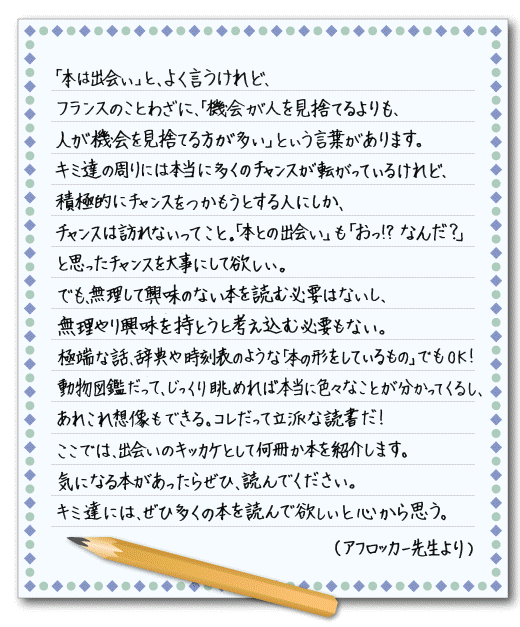 「本は出会い」と、よく言うけれど、
フランスのことわざに、「機会が人を見捨てるよりも、
人が機会を見捨てる方が多い」という言葉があります。
キミ達の周りには本当に多くのチャンスが転がっているけれど、
積極的にチャンスをつかもうとする人にしか、
チャンスは訪れないってこと。「本との出会い」も「おっ!?なんだ?」
と思ったチャンスを大事にして欲しい。
でも、無理して興味のない本を読む必要はないし、
無理やり興味を持とうと考え込む必要もない。
極端な話、辞典や時刻表のような「本の形をしているもの」でもOK!
動物図鑑だって、じっくり眺めれば本当に色々なことが分かってくるし、
あれこれ想像もできる。コレだって立派な読書だ!
ここでは、出会いのキッカケとして何冊か本を紹介します。
気になる本があったらぜひ、読んでください。
キミ達には、ぜひ多くの本を読んで欲しいと心から思う。
(アフロッカー先生より)